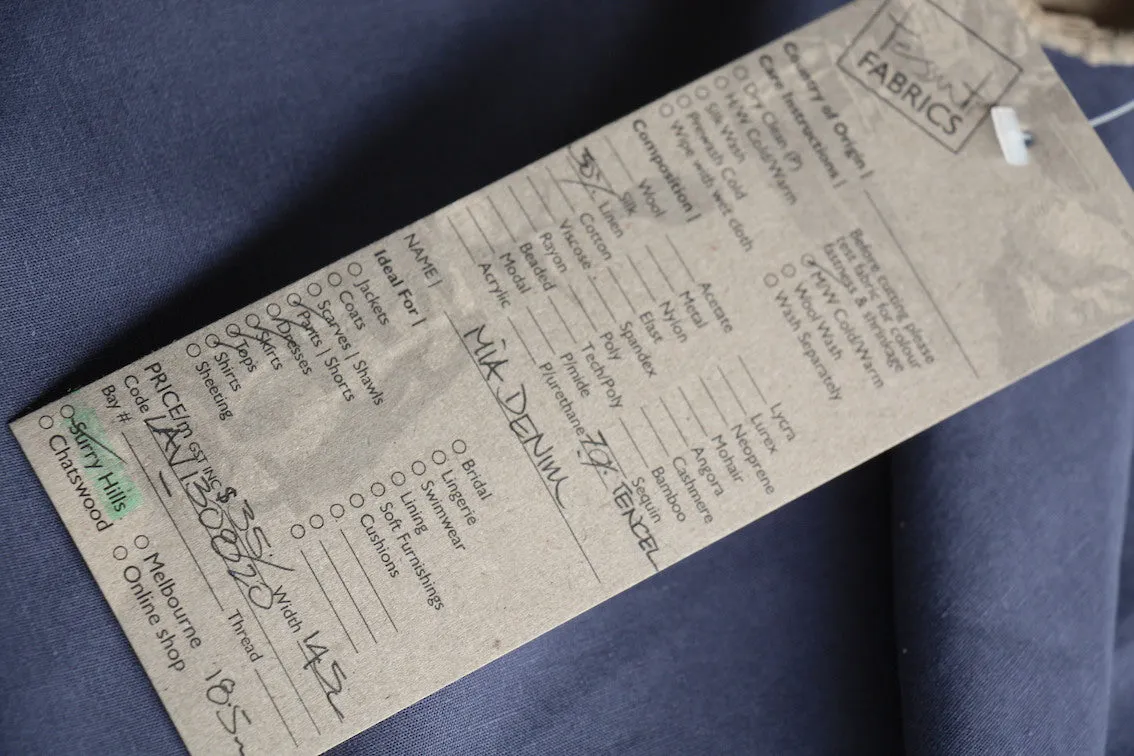 Tessuti
FABRICS
Country of Origin |
Care Instructions |
Before cutting please
test fabric for colour
fastness & shrinkage
Dry Clean (P)
H/W Cold/Warm
Silk Wash
Prewash Cold
Wipe with wet cloth
M/W Cold/Warm
Wool Wash
Wash Separately
Composition |
Wool
Silk
Linen
Cotton
Viscose
Rayon
Beaded
Modal
Acrylic
Acetate
Metal
Nylon
Elast
Spandex
Poly
Tech/Poly
P/mide
P/urethane
Lycra
Lurex
Neoprene
Mohair
Angora
Cashmere
Bamboo
Sequin
TENCEL
NAME | MIA DENIM
Ideal For |
Jackets
Coats
Scarves | Shawls
Pants | Shorts
Dresses
Skirts
Tops
Shirts
Sheeting
Bridal
Lingerie
Swimwear
Lining
Soft Furnishings
Cushions
PRICE/m GST INC $ 35/ Width 145
Code LAV1308020
Bay # Thread
Surry Hills
Chatswood
Melbourne
Online shop
18.5m